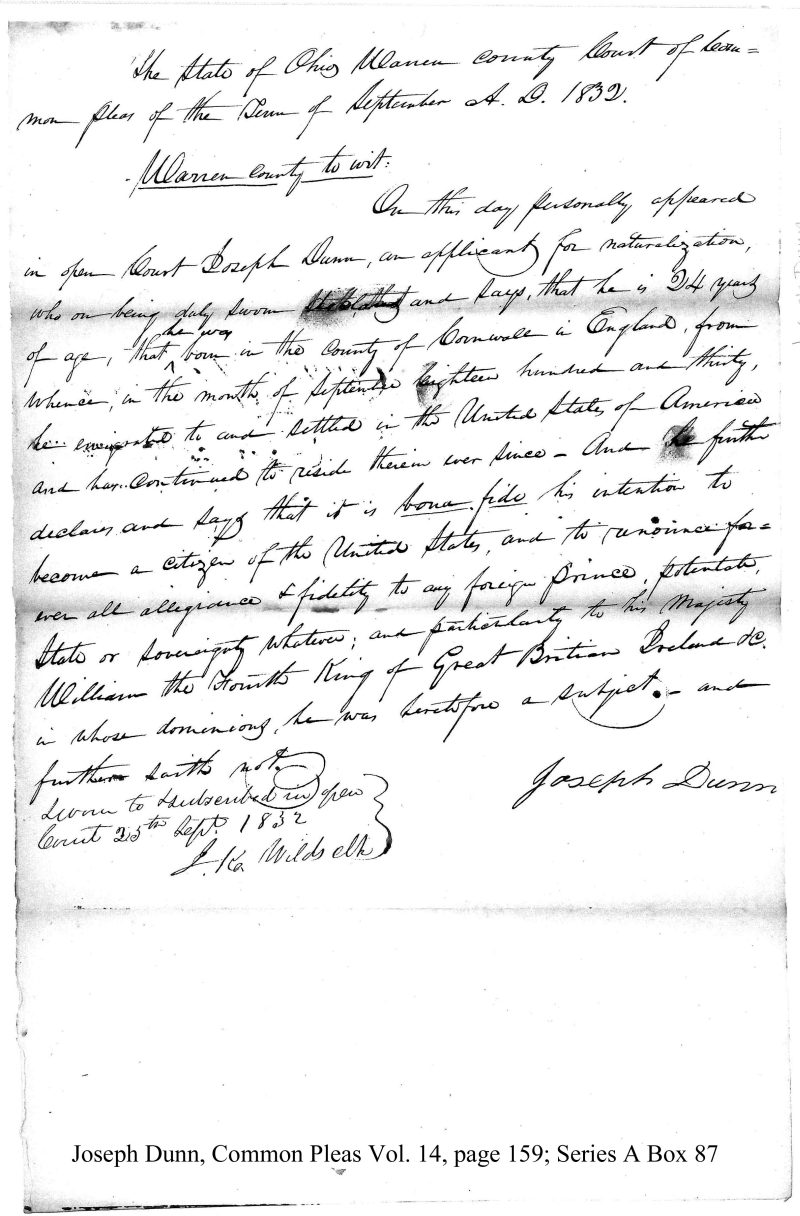 The State of Ohio Warren county Court of Com=
mon Pleas of the Term of September A. D. 1832.
Warren county to wit:
On this day personally appeared
in open Court Joseph Dunn, an applicant for naturalization,
who on being duly sworn and says, that he is 24 years
of age, that he was born in the county of Cornwall in England, from
whence, in the month of September eighteen hundred and thirty,
he emigrated to and settled in the United States of America
and has continued to reside therein ever since – And he further
declares and says that it is bona fide his intention to
become a citizen of the United States, and to renounce for=
ever all allegiance & fidelity to any foreign Prince, potentate,
State or sovereignty whatever; and particularly to his Majesty
William the Fourth King of Great Britian Ireland &c.
in whose dominions, he was heretofore a subject. – and
further saith not.
Joseph Dunn
Sworn to & subscribed in open
Court 25th Sept. 1832
J. K. Wilds clk
Joseph Dunn, Common Pleas Vol. 14, page 159; Series A Box 87